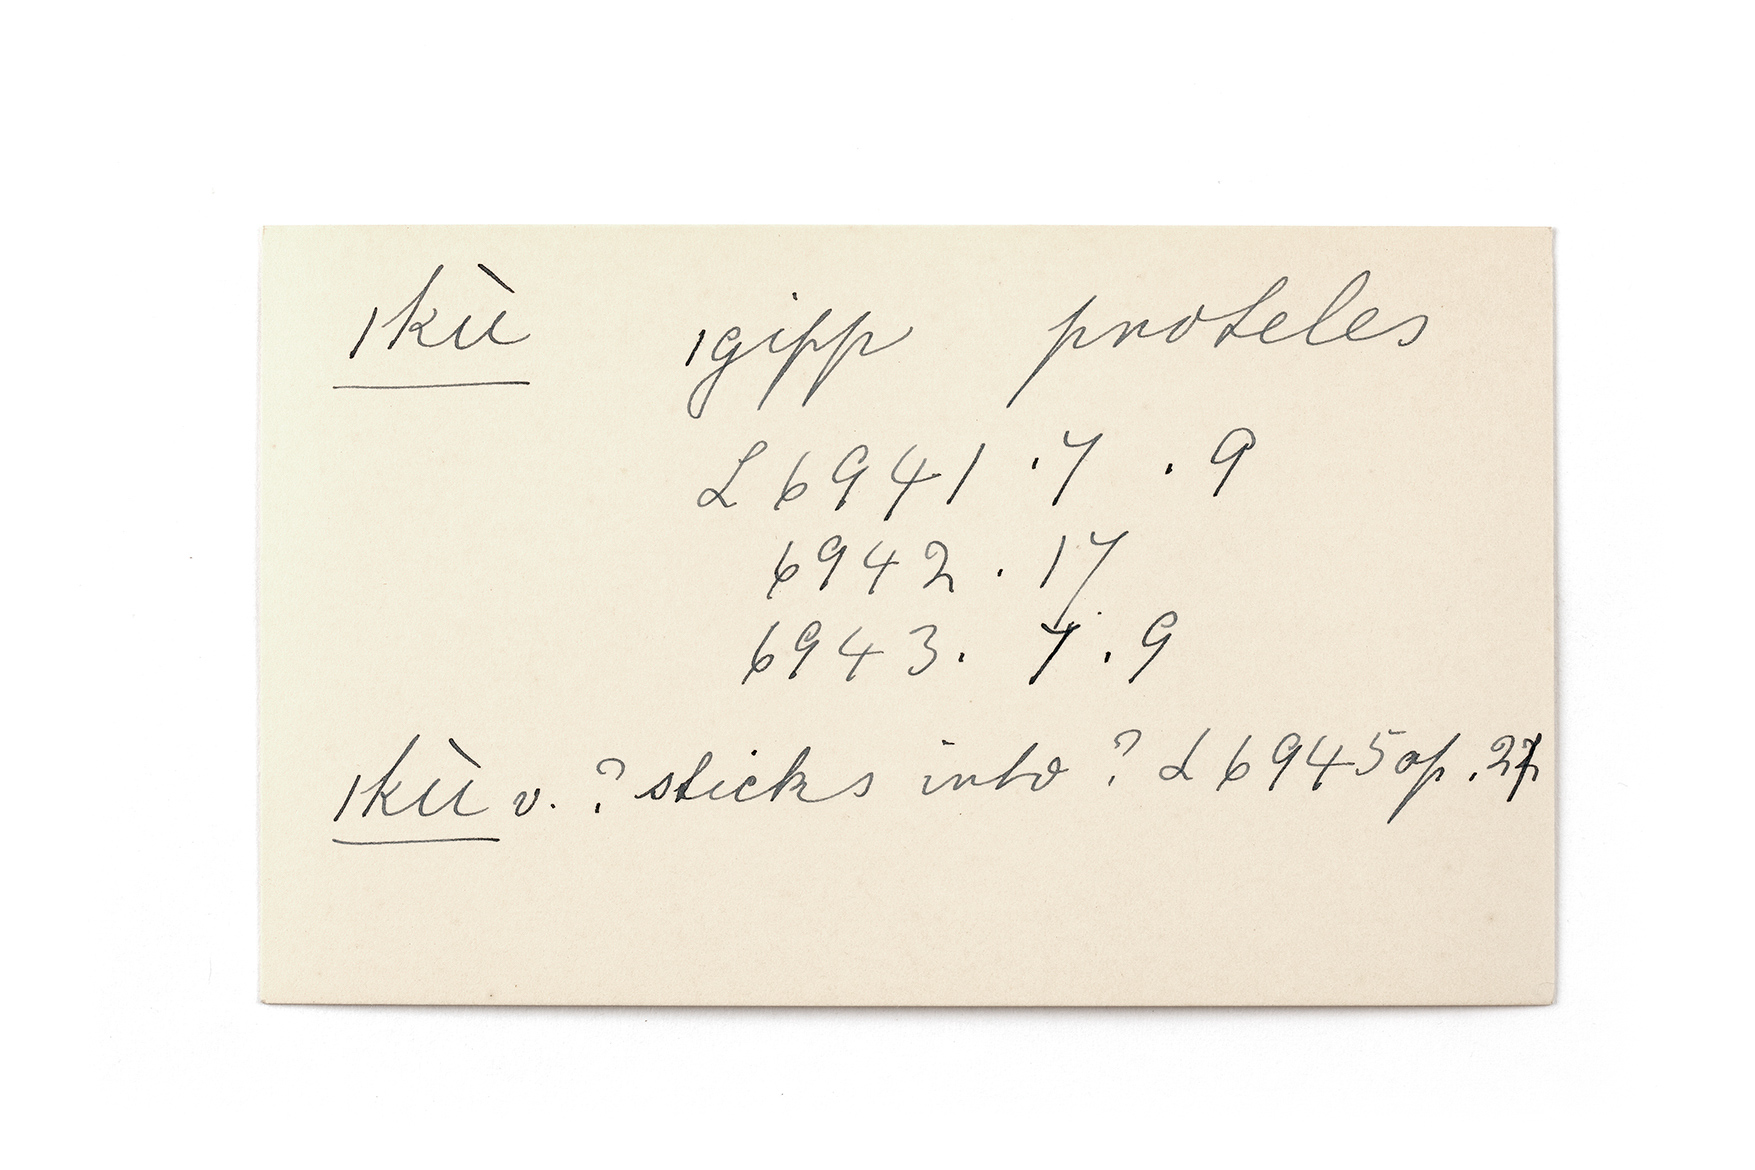 ǀkù ǀgipp proteles
L 6941 . 7 . 9
6942 . 17
6943 . 7 . 9
ǀkù v. ? sticks into ? L 6945 op. 27